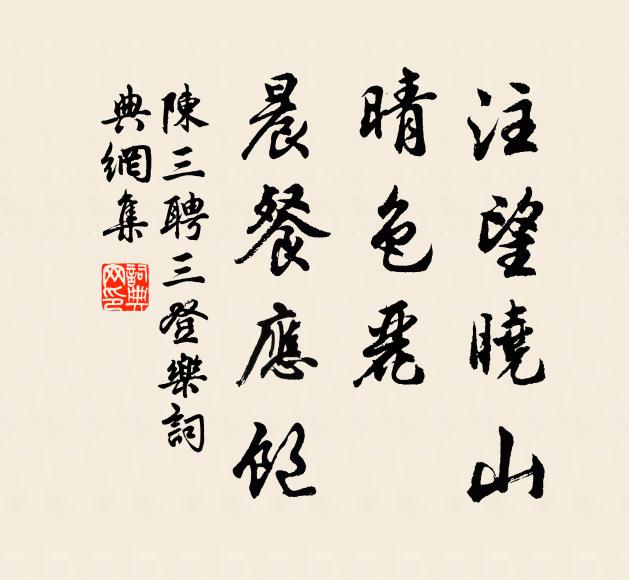 注望曉山
晴色麗
晨餐應飽
陳三聘三登樂詞
典網集
詞典網印